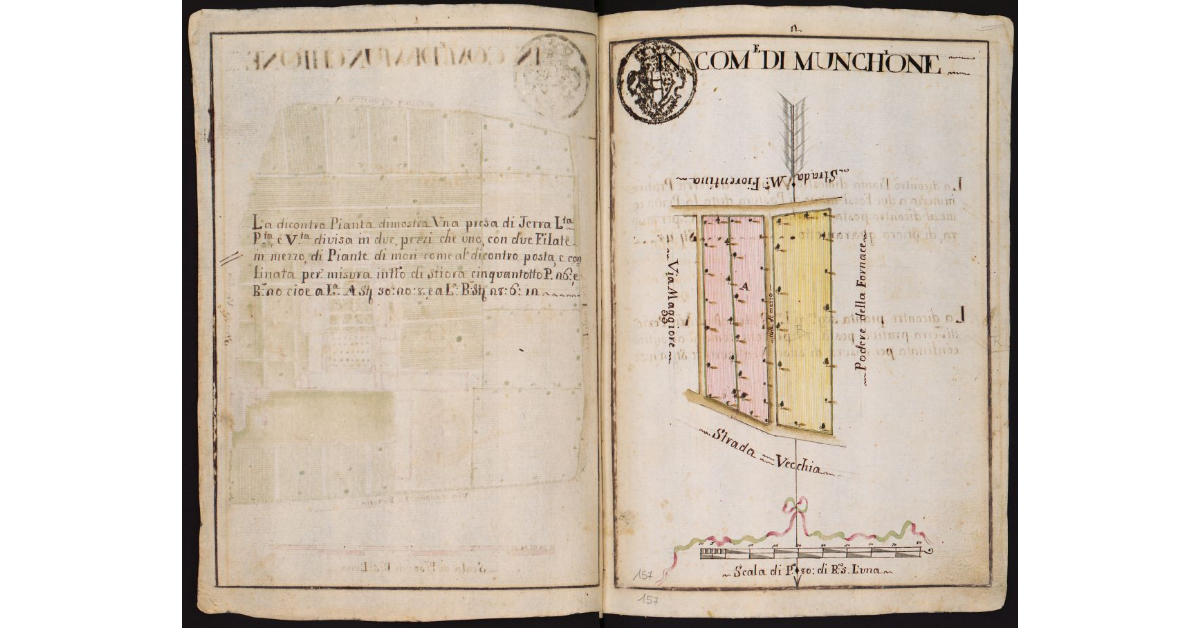 La dicontro Pianta dimostra Vna presa di Terra L.ta
P.ta e V.ta divisa in due, pezzi che uno, con due Filate
in mezzo, di Piante di mori come al dicontro posta, e con
finata per misura in tto di stiora cinquantotto P. n6: e
B.no cioe a L.a A St 30: no: 8, e a L.a B. St n8: 6: in
n.
IN COM.E DI MUNCHIONE
Strada M.a Fiorentina
Via Maggiore
A
B
Podere della Fornace
Strada Vecchia
Scala di P. 80: di B.s Luna
157
157